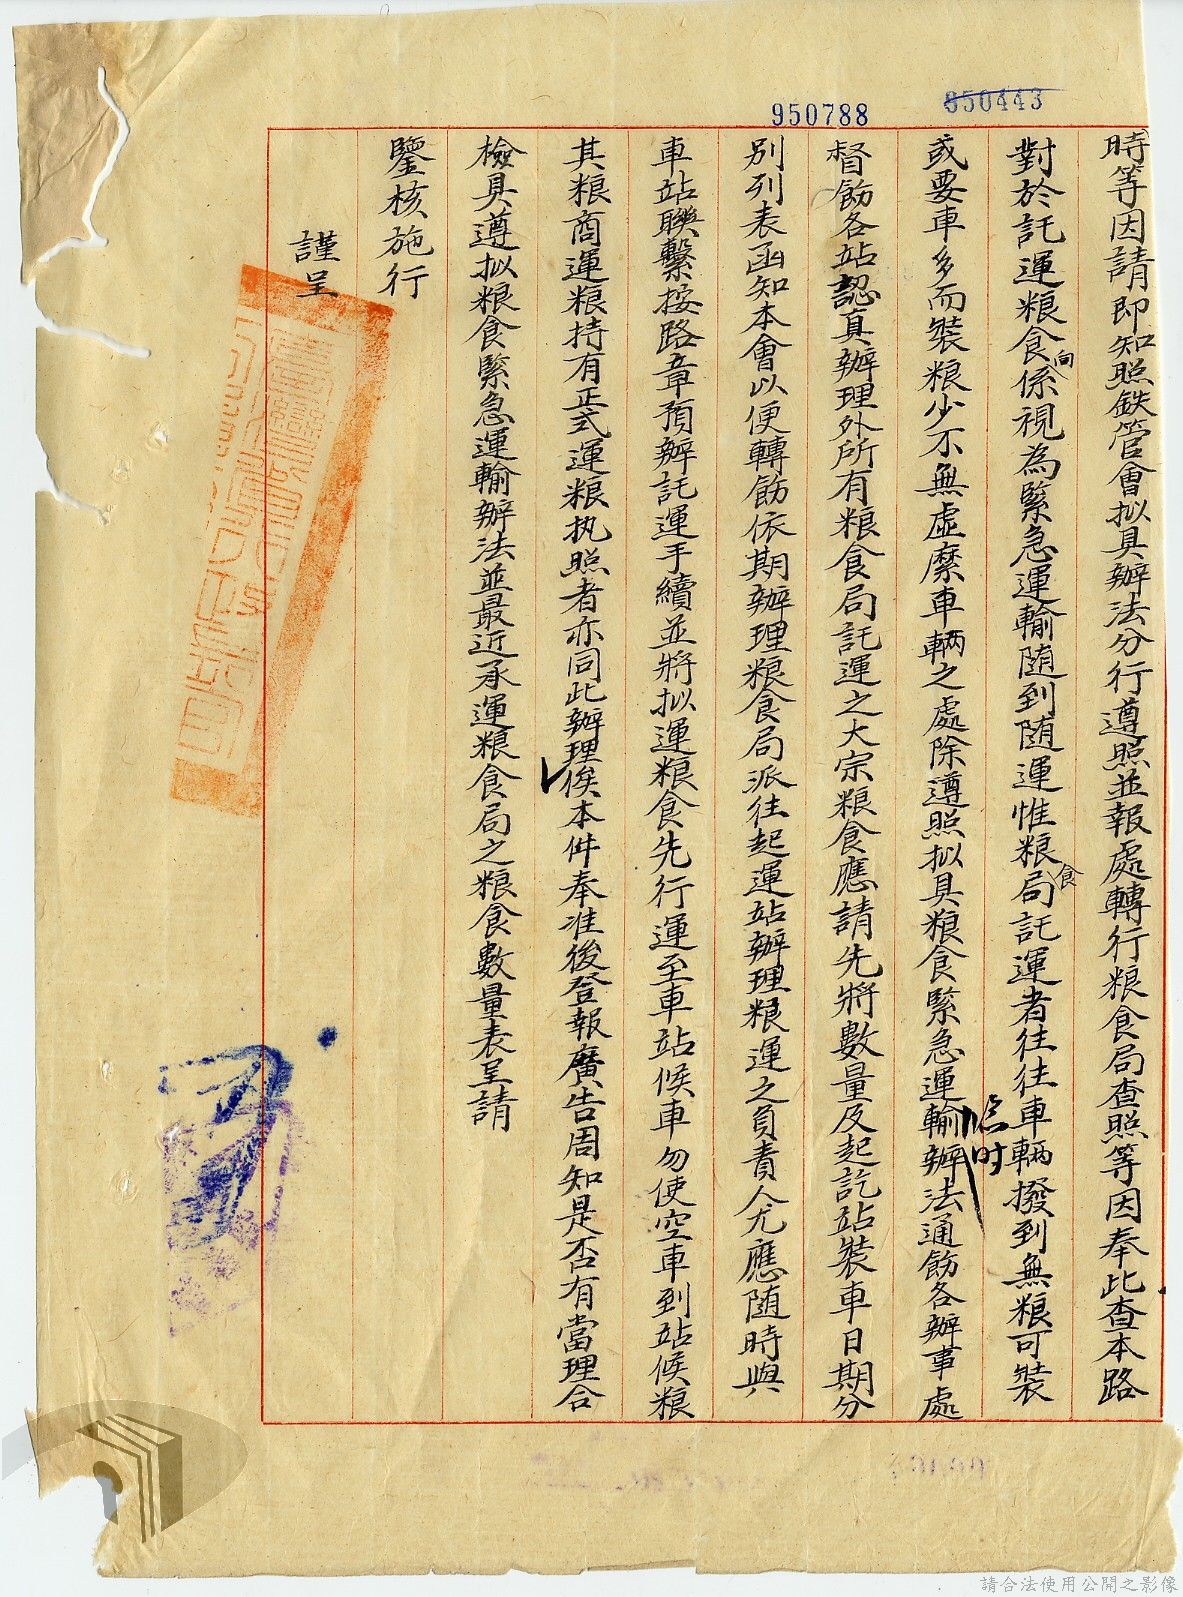 950788
850443
時等因請即知照鉄管會拟具辦法分行遵照並報處轉行粮食局查照等因奉此查本路
對於託運粮食向係視為緊急運輸随到随運惟粮食局託運者往往車輛撥到無粮可裝
或要車多而裝粮少不無虛縻車輛之處除遵照拟具粮食緊急運輸臨时辦法通飭各辦事處
督飭各站認真辦理外所有粮食局託運之大宗粮食應請先將數量及起訖站裝車日期分
別列表函知本會以便轉飭依期辦理粮食局派往起運站辦理粮運之負責人尤應随時與
車站聯繫按路章預辦託運手續並將拟運粮食先行運至車站候車勿使空車到站候粮
其粮商運粮持有正式運粮执照者亦同此辦理俟本件奉准後登報廣告周知是否有當理合
檢具遵拟粮食緊急運輸辦法並最近承運粮食局之粮食數量表呈請
鑒核施行
謹呈
臺灣省行政長官
請合法使用公開之影像